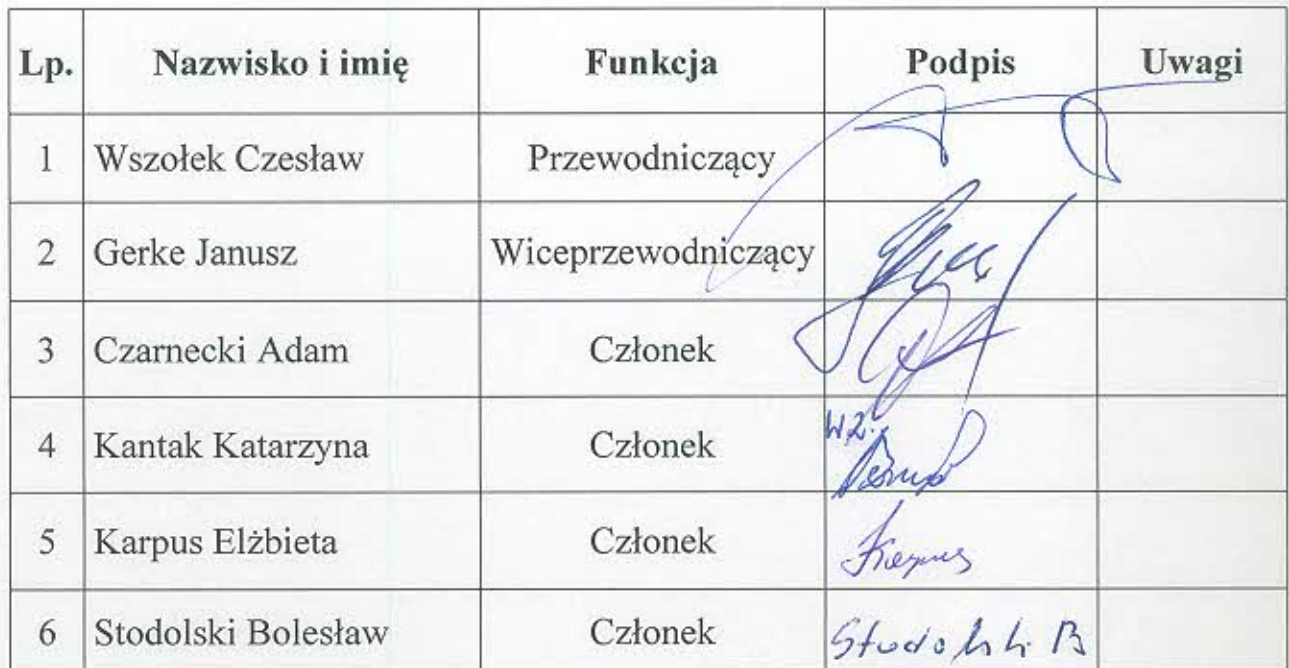 Lp. Nazwisko i imię Funkcja Podpis Uwagi
1 Wszołek Czesław Przewodniczący
2 Gerke Janusz Wiceprzewodniczący
3 Czarnecki Adam Członek
4 Kantak Katarzyna Członek
5 Karpus Elżbieta Członek Karpus
6 Stodolski Bolesław Członek Stodolski B